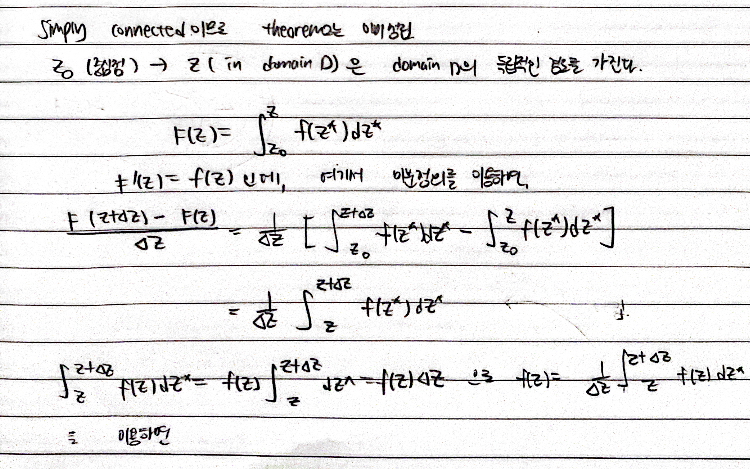 Simply connected 이므로 theorem2는 이미 성립
z₀ (중심점) → z ( in domain D) 은 domain D의 독립적인 경로를 가진다.
F(z) = ∫_{z₀}^{z} f(z*)dz*
F'(z) = f(z) 인데, 여기서 미분정의를 이용하면,
\frac{F(z+Δz) - F(z)}{Δz} = \frac{1}{Δz} [ ∫_{z₀}^{z+Δz} f(z*)dz* - ∫_{z₀}^{z} f(z*)dz* ]
= \frac{1}{Δz} ∫_{z}^{z+Δz} f(z*)dz*
∫_{z}^{z+Δz} f(z)dz* = f(z) ∫_{z}^{z+Δz} dz* = f(z)Δz 으로 f(z) = \frac{1}{Δz} ∫_{z}^{z+Δz} f(z)dz*
를 이용하면